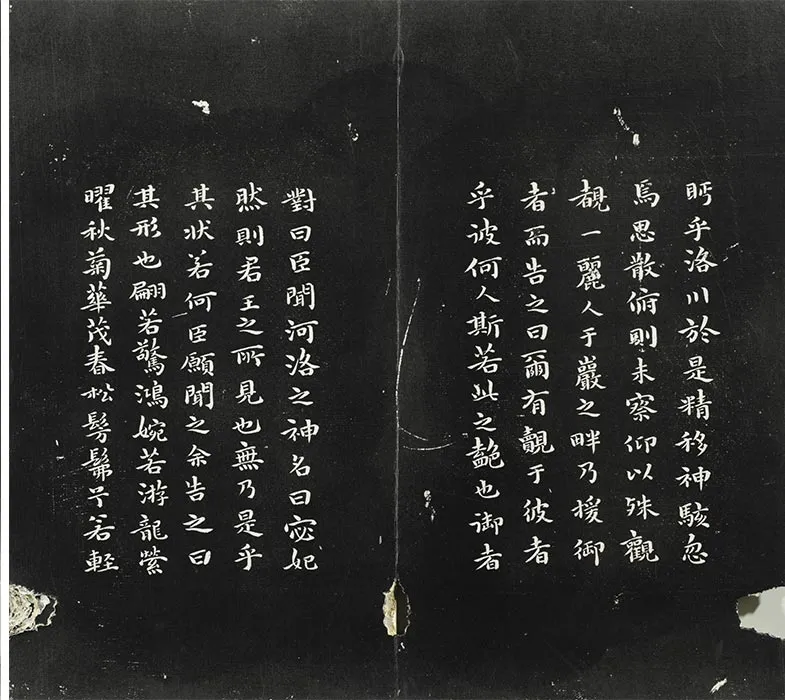 眄乎洛川於是精移神駭忽
焉思散俯則未察仰以殊觀
覩一麗人于巖之畔乃援御
者而告之曰爾有覿于彼者
乎彼何人斯若此之艷也御者
對曰臣聞河洛之神名曰宓妃
然則君王之所見也無乃是乎
其状若何臣願聞之余告之曰
其形也翩若驚鴻婉若游龍榮
曜秋菊華茂春松髣髴兮若輕